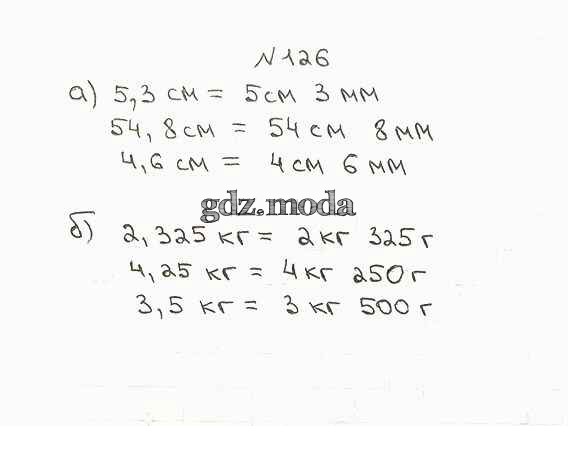 N126
а) 5,3 см = 5см 3 мм
54,8см = 54см 8 мм
4,6 см = 4 см 6 мм
gdz.moda
б) 2,325 кг = 2кг 325г
4,25 кг = 4кг 250г
3,5 кг = 3 кг 500 г